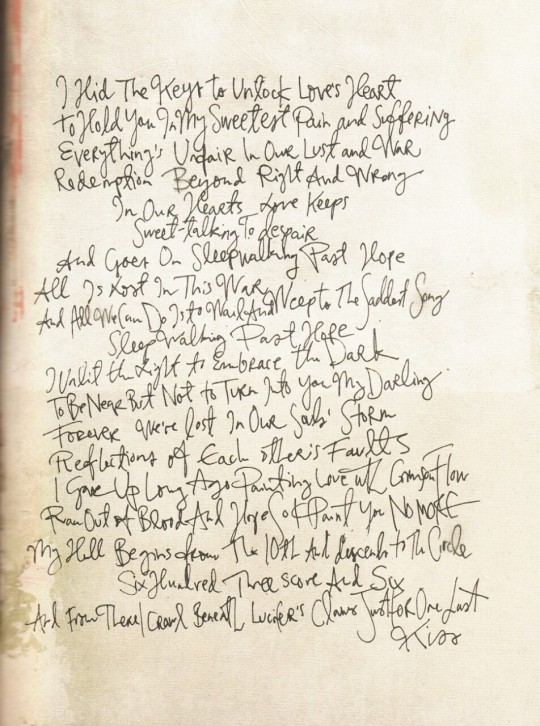 I Hid The Keys to Unlock Love's Heart
to Hold You In My Sweetest Pain and Suffering
Everything's Unfair In Our Lust and War
Redemption Beyond Right And Wrong
In Our Hearts Love Keeps
Sweet-talking To despair
And Goes On Sleepwalking Past Hope
All Is Lost In This War
And All We Can Do Is to Wail And Weep to The Saddest Song
Sleepwalking Past Hope
I Unlit the Light to Embrace the Dark
To Be Near But Not to Turn Into You My Darling
Forever We're lost In Our Souls' Storm
Reflections of Each other's Faults
I Gave Up Long Ago Painting Love with Crimson Flow
Ran Out of Blood And Hope So I Paint You No MORE
My Hell Begins from The 10th And descends to The Circle
Six Hundred Threescore And Six
And From There I Crawl Beneath Lucifer's Claws Just For One Last
Kiss